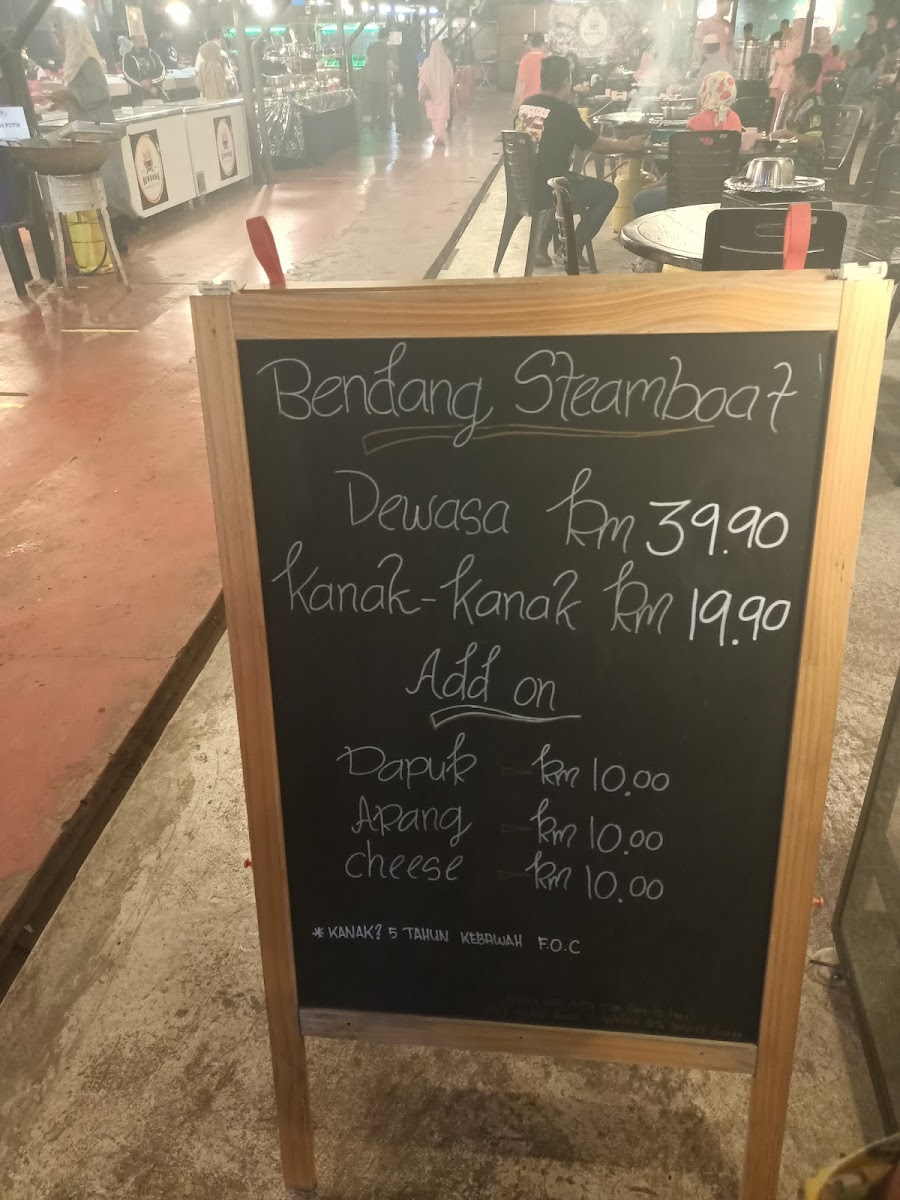 Bendang Steamboat
Dewasa RM 39.90
Kanak-Kanak RM 19.90
Add on
Dapur - RM 10.00
Arang - RM 10.00
cheese - RM 10.00
* KANAK² 5 TAHUN KEBAWAH F.O.C